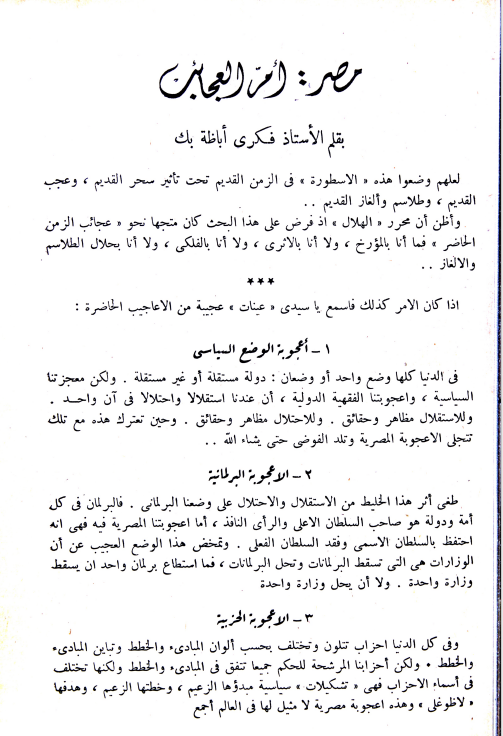 مصر : أمّ العجائب
بقلم الأستاذ فكرى أباظة بك
لعلهم وضعوا هذه « الاسطورة » فى الزمن القديم تحت تأثير سحر القديم ، وعجب
القديم ، وطلاسم وألغاز القديم . .
وأظن أن محرر « الهلال » اذ فرض على هذا البحث كان متجها نحو « عجائب الزمن
الحاضر » فما أنا بالمؤرخ ، ولا أنا بالاثرى ، ولا أنا بالفلكى ، ولا أنا بحلال الطلاسم
والالغاز . .
***
اذا كان الامر كذلك فاسمع يا سيدى « عينات » عجيبة من الاعاجيب الحاضرة :
١ – أعجوبة الوضع السياسى
فى الدنيا كلها وضع واحد أو وضعان : دولة مستقلة أو غير مستقلة . ولكن معجزتنا
السياسية ، واعجوبتنا الفقهية الدولية ، أن عندنا استقلالا واحتلالا فى آن واحـد .
وللاستقلال مظاهر وحقائق . وللاحتلال مظاهر وحقائق . وحين تعترك هذه مع تلك
تتجلى الاعجوبة المصرية وتلد الفوضى حتى يشاء الله . .
٢ – الاعجوبة البرلمانية
طغى أثر هذا الخليط من الاستقلال والاحتلال على وضعنا البرلمانى . فالبرلمان فى كل
أمة ودولة هو صاحب السلطان الاعلى والرأى النافذ ، أما اعجوبتنا المصرية فيه فهى انه
احتفظ بالسلطان الاسمى وفقد السلطان الفعلى . وتمخض هذا الوضع العجيب عن أن
الوزارات هى التى تسقط البرلمانات وتحل البرلمانات ، فما استطاع برلمان واحد ان يسقط
وزارة واحدة . ولا أن يحل وزارة واحدة
٣ – الاعجوبة الحزبية
وفى كل الدنيا احزاب تتلون وتختلف بحسب ألوان المبادىء والخطط وتباين المبادىء
والخطط . ولكن أحزابنا المرشحة للحكم جميعا تتفق فى المبادىء والخطط ولكنها تختلف
فى أسماء الاحزاب فهى « تشكيلات » سياسية مبدؤها الزعيم ، وخطتها الزعيم ، وهدفها
« لاظوغلى » وهذه اعجوبة مصرية لا مثيل لها فى العالم أجمع